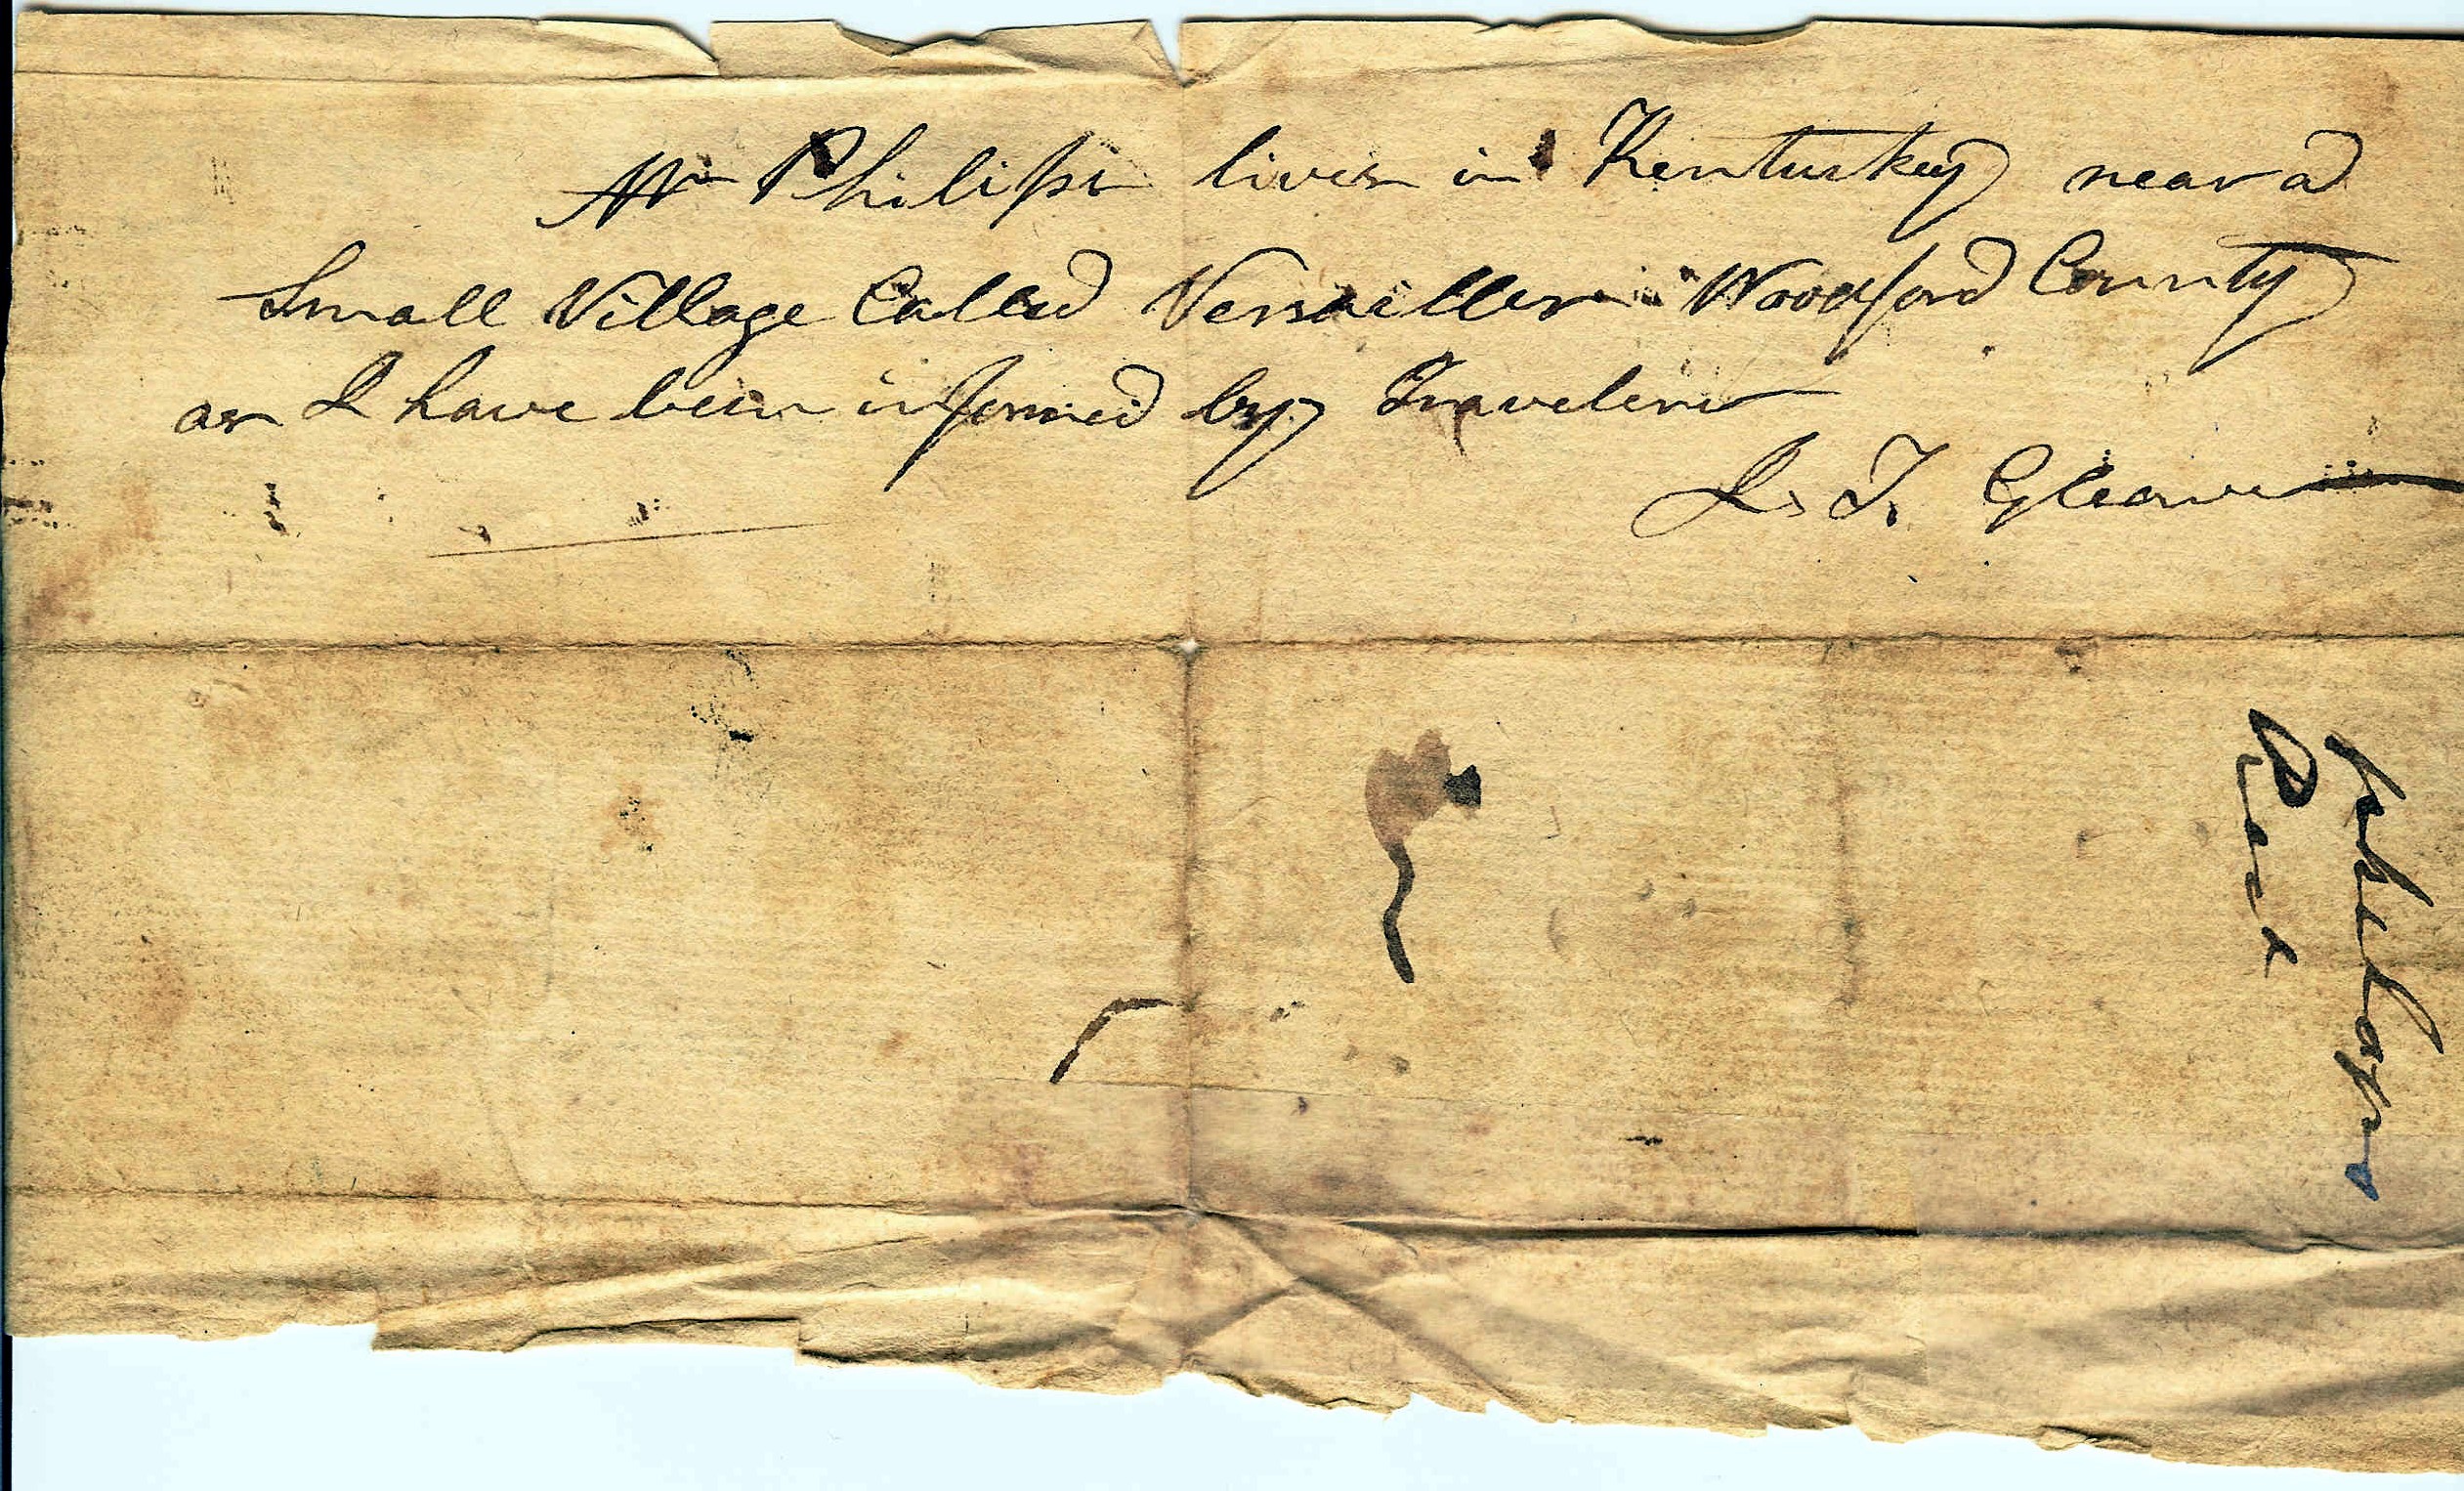 Mr Philips lives in Kentuckey near a
Small Village Called Versailles in Woodford County
as I have been informed by Travelers
T. Gleaves